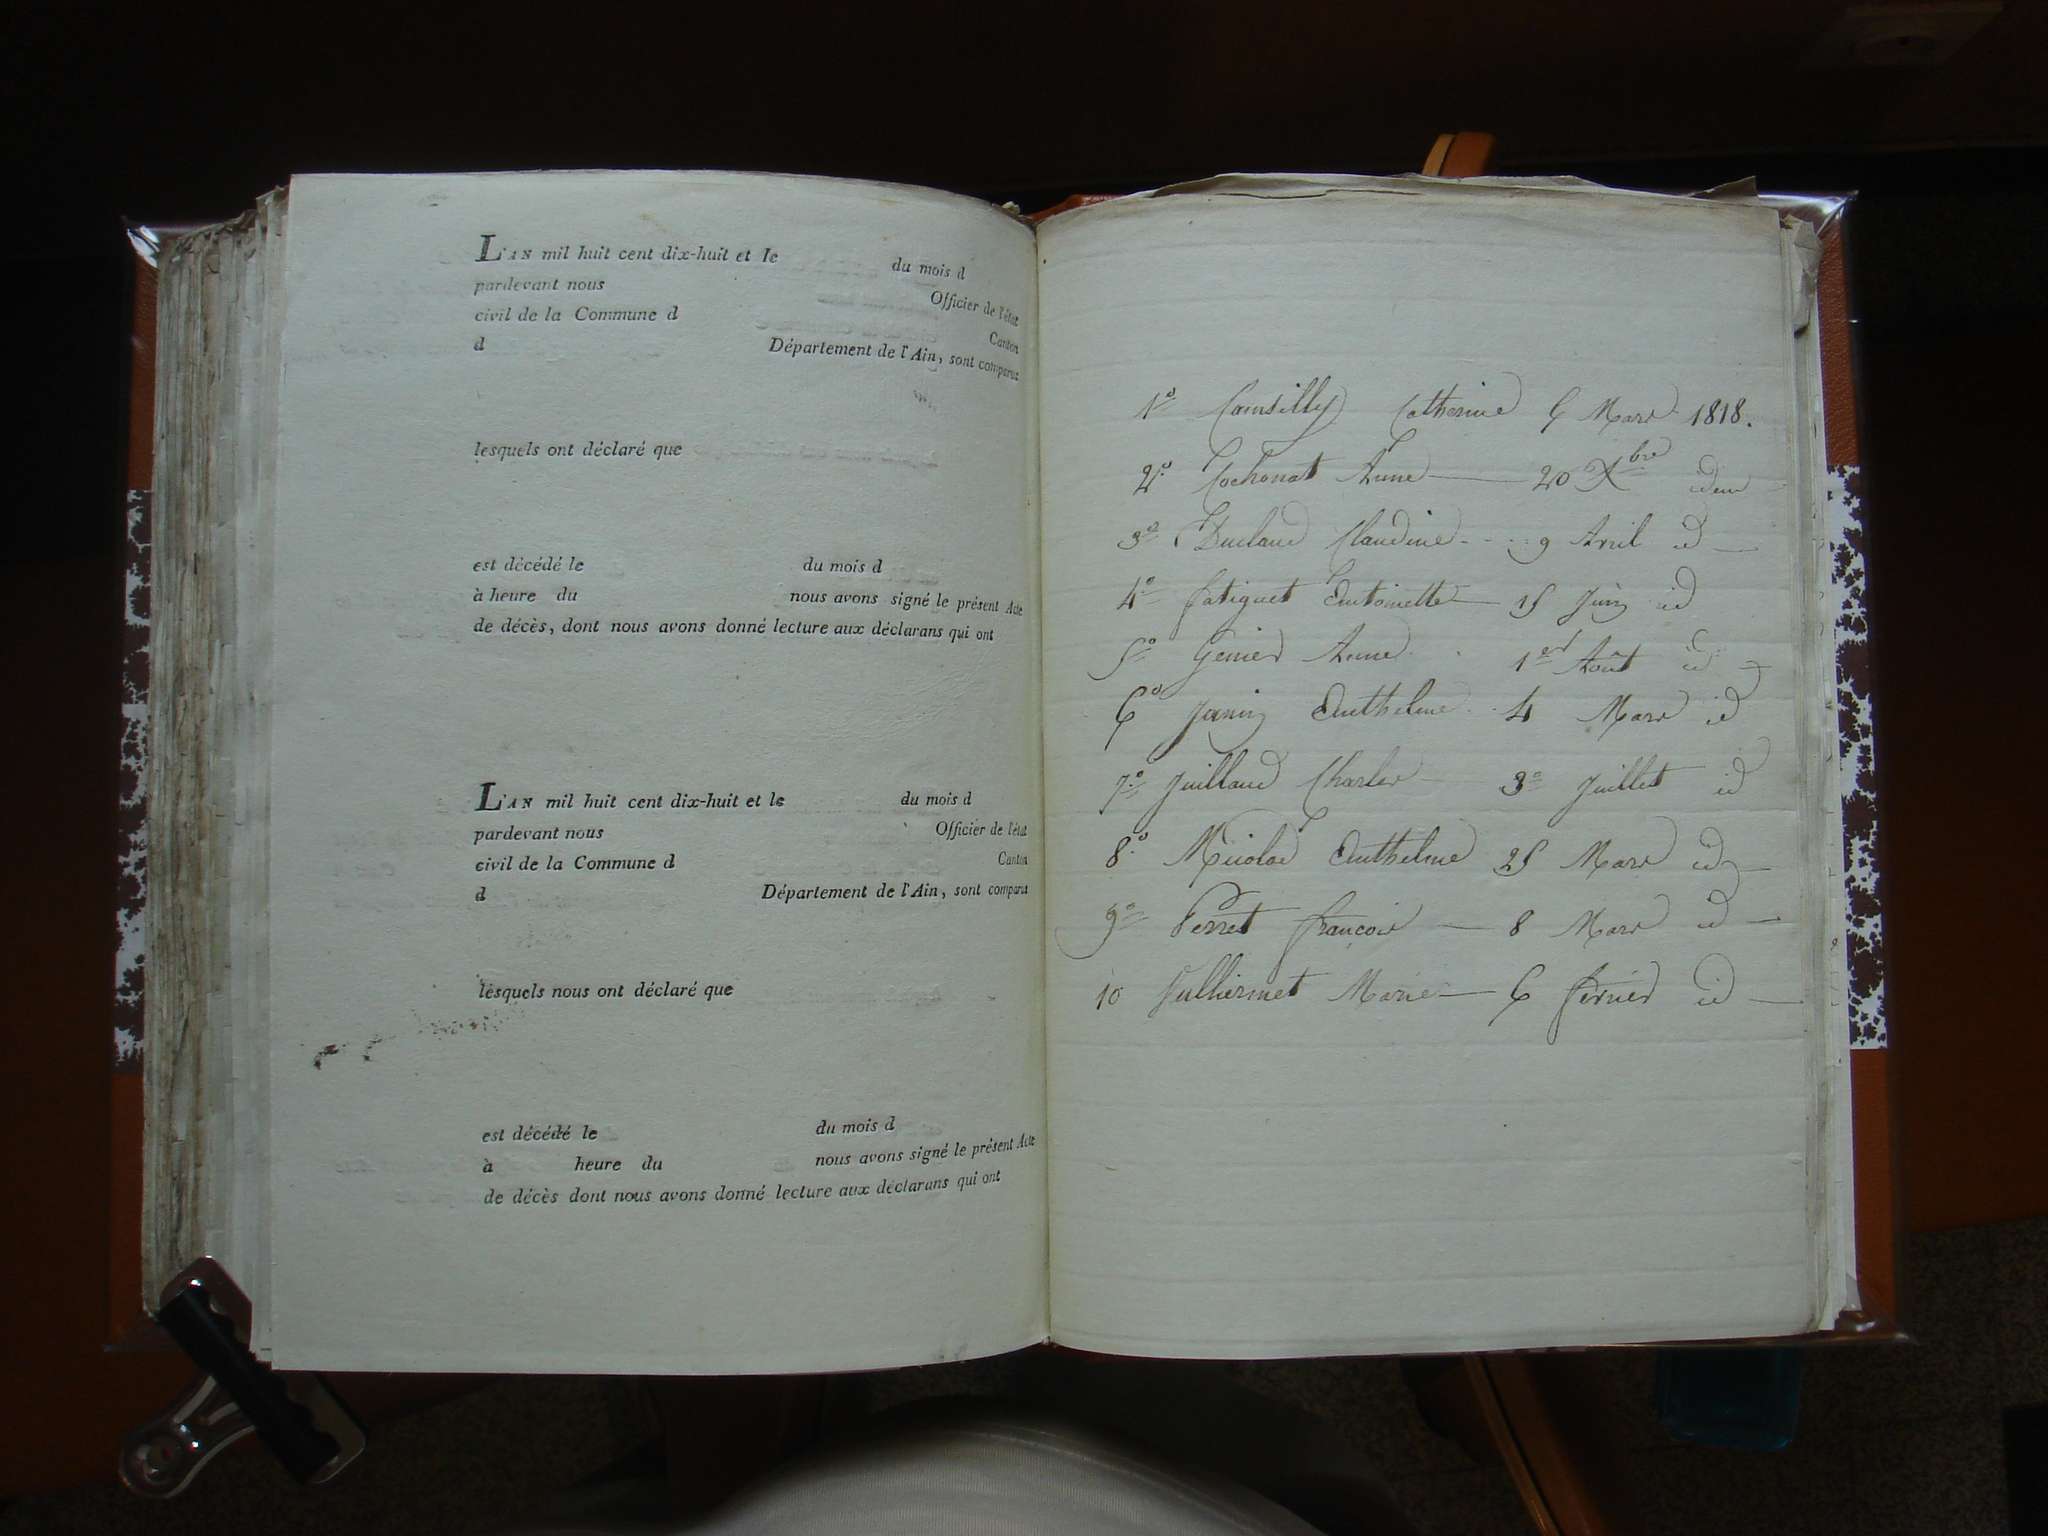 L'AN mil huit cent dix-huit et le du mois d
pardevant nous Officier de l'état
civil de la Commune d Canton
d Département de l'Ain, sont comparus
lesquels ont déclaré que
est décédé le du mois d
à heure du nous avons signé le présent Acte
de décès, dont nous avons donné lecture aux déclarans qui ont
L'AN mil huit cent dix-huit et le du mois d
pardevant nous Officier de l'état
civil de la Commune d Canton
d Département de l'Ain, sont comparus
lesquels nous ont déclaré que
est décédé le du mois d
à heure du nous avons signé le présent Acte
de décès dont nous avons donné lecture aux déclarans qui ont
1° Catherine 6 Mars 1818.
2° Cochonat Anne 20 Xbre idem
3° Duclaud Claudine 9 Avril id
4° fatiguet Antoinette 15 Juin id
5° Genier Anne 1er Août id
6° Janin Anthelme 4 Mars id
7° Juilland Charles 3° Juillet id
8° Nicolas Anthelme 25 Mars id
9° Perret françois 8 Mars id
10 Mariè 6 id